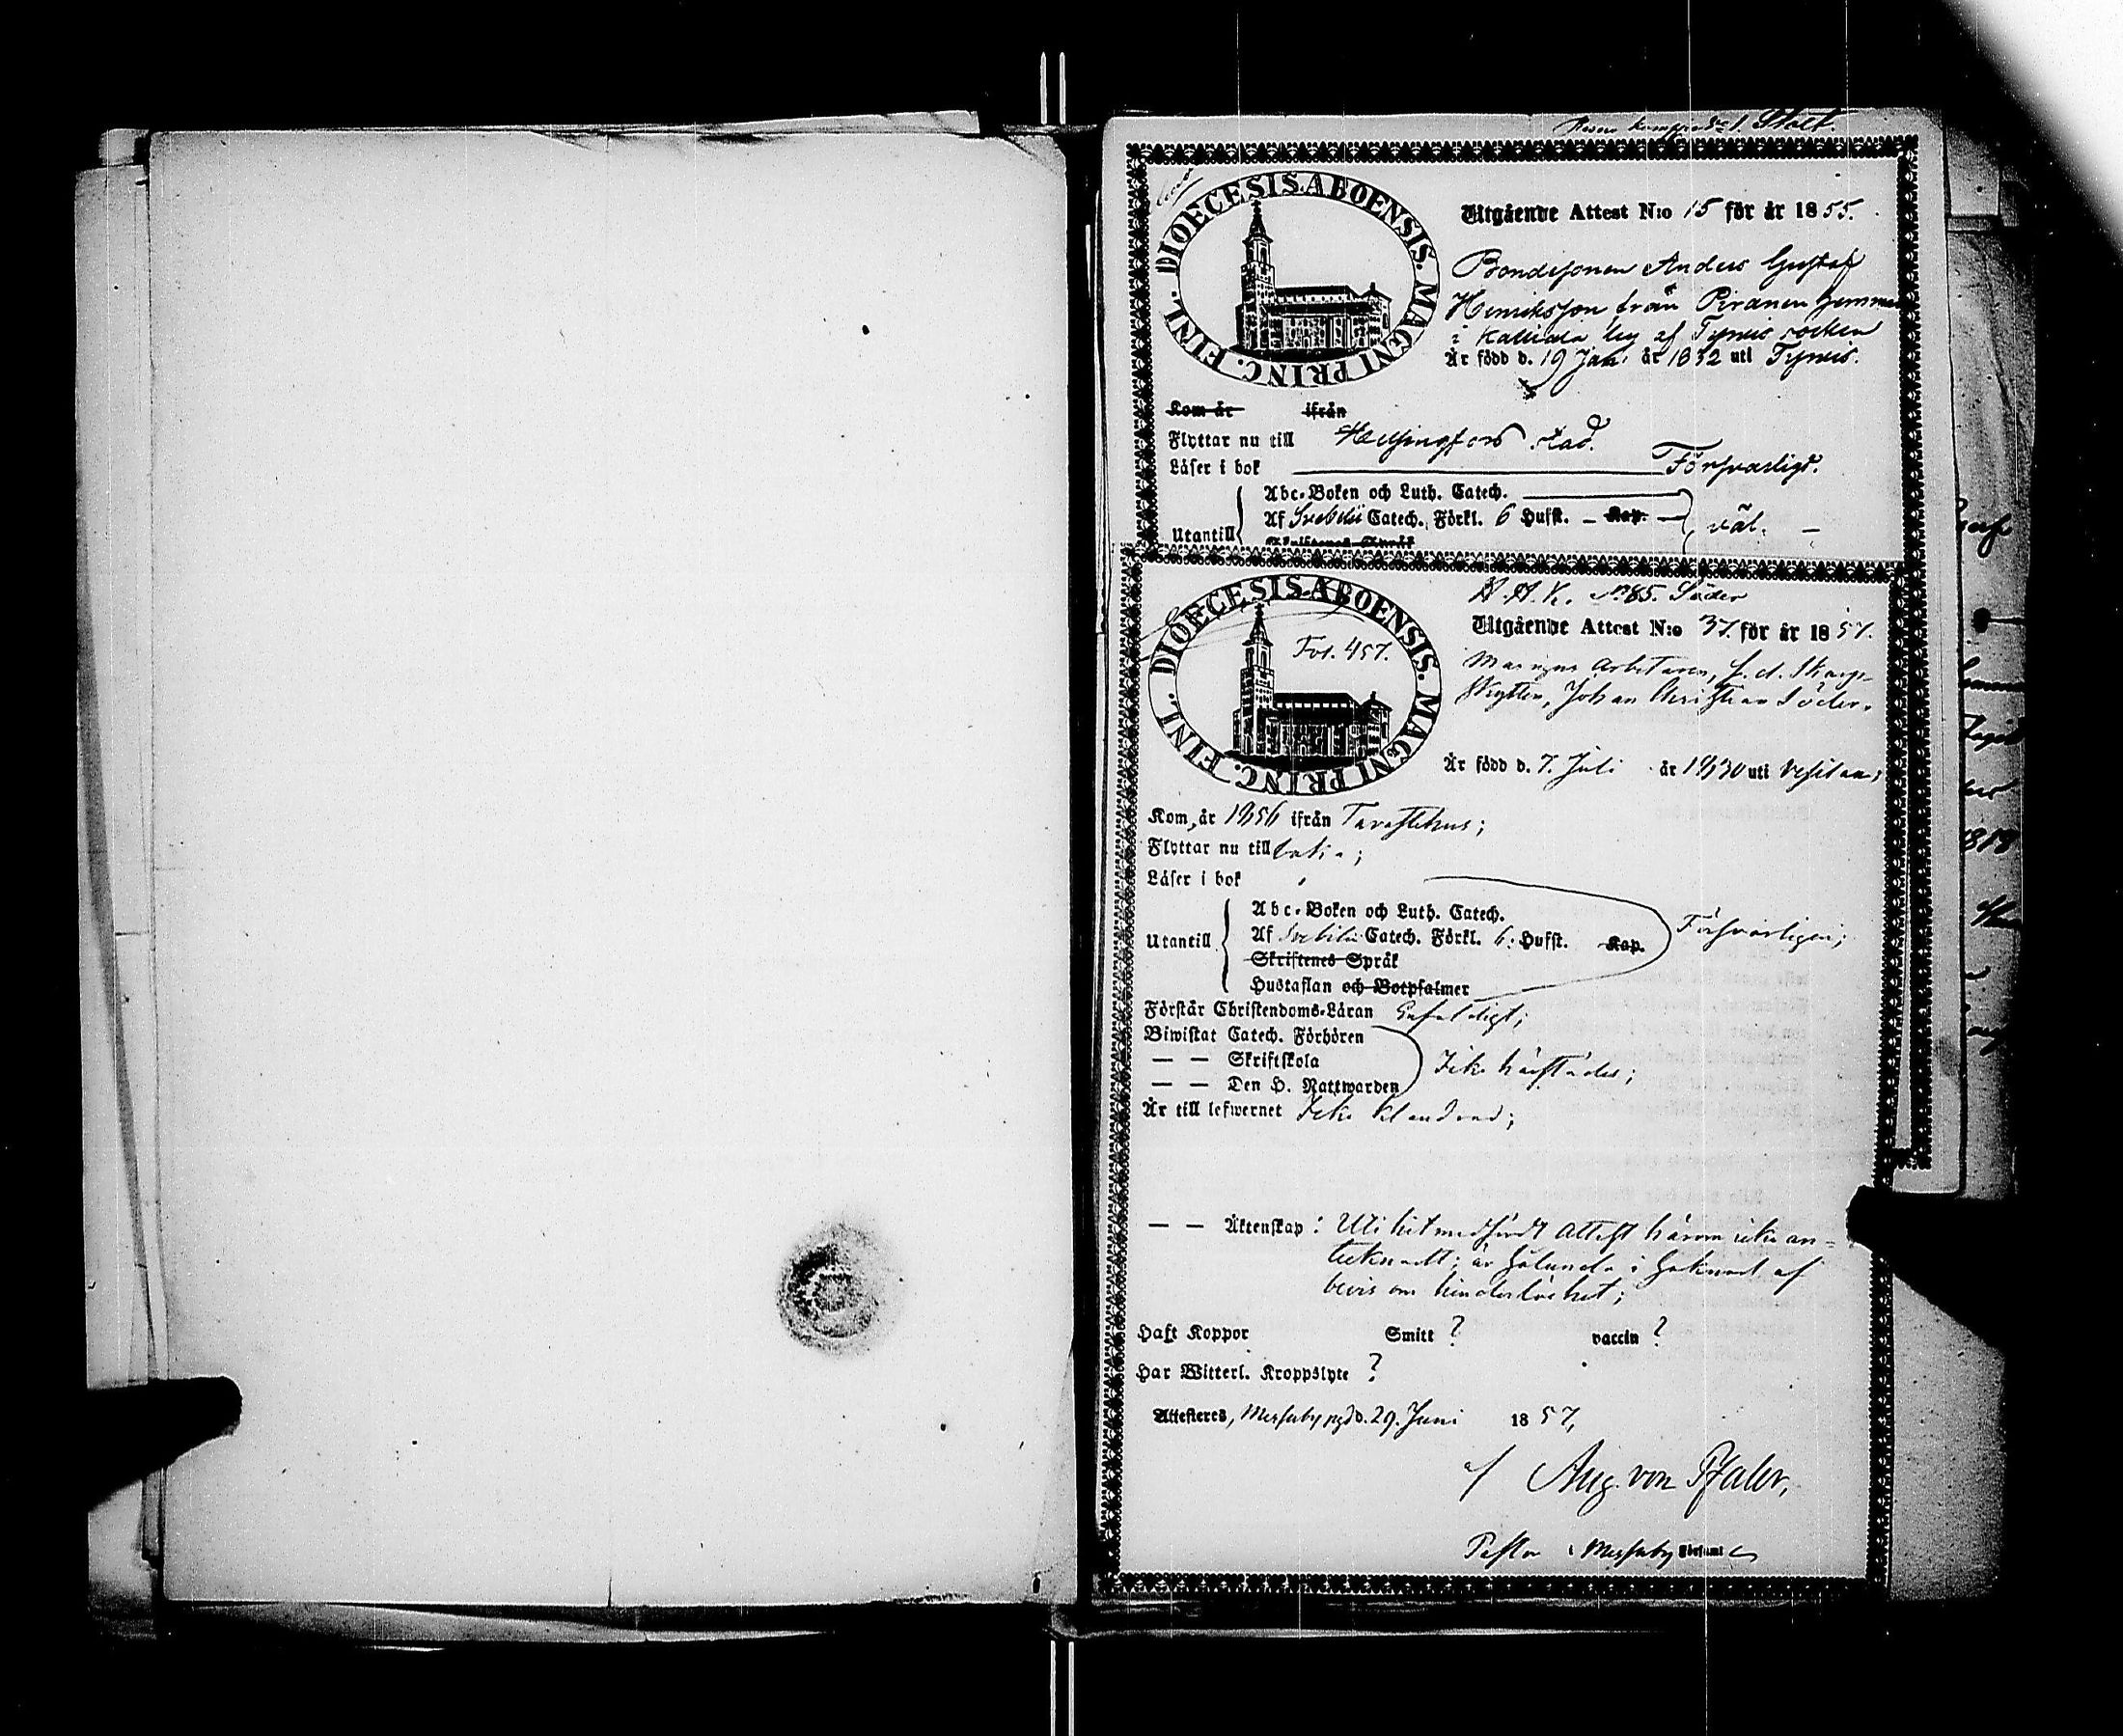 DIOECESIS ABOENSIS. MAGNI PRINC. FINL.
Utgående Attest N:o 15 för år 1855.
Bondesonen Anders Gustaf
Henriksson från Piranen hemman
i Kalliala by af Tyrvis socken
Är född d. 19 Jan. år 1832 uti Tyrvis.
Kom år ifrån
Flyttar nu till Helsingfors stad.
Läser i bok Försvarligt.
Abc-Boken och Luth. Catech.
Utantill Af Svebelii Catech. Förkl. 6 Hufst. – Kap. – väl. –
DIOECESIS ABOENSIS. MAGNI PRINC. FINL.
Fol. 457.
No 85. Söder
Utgående Attest N:o 37. för år 1857.
arbetaren, f. d. Skarp-
skytten, Johan Christian Söder.
Är född d. 7. Juli år 1830 uti Vesilax;
Kom år 1856 ifrån Tavastehus;
Flyttar nu till
Läser i bok
Abc-Boken och Luth. Catech.
Utantill Af Svebilii Catech. Förkl. 6. Hufst. Kap. Försvarligen;
Skriftenes Språk
Hustaflan och Botpsalmer
Förstår Christendoms-Läran Enfaldigt;
Biwistat Catech. Förhören
— — Skriftskola Icke härstädes;
— — Den H. Nattwarden
Är till lefwernet Icke klandrad;
— — Äktenskap: Uti hitmedfördt attest härom icke an-
tecknadt; är sålunda i saknad af
bevis om hinderlöshet;
Haft Koppor Smitt ? vaccin ?
Har Witterl. Kroppslyte ?
Attesteres, Messuby pgd d. 29. Juni 1857,
Aug. von Pfaler,
Pastor i Messuby Församl